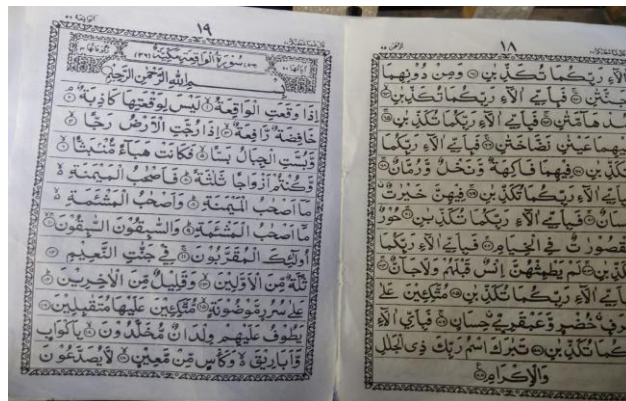 ١٨
اٰلَآءِ رَبِّكُمَا تُكَذِّبٰنِ ۞ وَمِنْ دُوْنِهِمَا
جَنَّتٰنِ ۞ فَبِاَيِّ اٰلَآءِ رَبِّكُمَا تُكَذِّبٰنِ ۞
مُدْهَآمَّتٰنِ ۞ فَبِاَيِّ اٰلَآءِ رَبِّكُمَا تُكَذِّبٰنِ ۞
فِيْهِمَا عَيْنٰنِ نَضَّاخَتٰنِ ۞ فَبِاَيِّ اٰلَآءِ رَبِّكُمَا
تُكَذِّبٰنِ ۞ فِيْهِمَا فَاكِهَةٌ وَّنَخْلٌ وَّرُمَّانٌ ۞
فَبِاَيِّ اٰلَآءِ رَبِّكُمَا تُكَذِّبٰنِ ۞ فِيْهِنَّ خَيْرٰتٌ
حِسَانٌ ۞ فَبِاَيِّ اٰلَآءِ رَبِّكُمَا تُكَذِّبٰنِ ۞ حُوْرٌ
مَّقْصُوْرٰتٌ فِي الْخِيَامِ ۞ فَبِاَيِّ اٰلَآءِ رَبِّكُمَا
تُكَذِّبٰنِ ۞ لَمْ يَطْمِثْهُنَّ اِنْسٌ قَبْلَهُمْ وَلَا جَآنٌّ ۞
فَبِاَيِّ اٰلَآءِ رَبِّكُمَا تُكَذِّبٰنِ ۞ مُتَّكِـِٕيْنَ عَلٰى
رَفْرَفٍ خُضْرٍ وَّعَبْقَرِيٍّ حِسَانٍ ۞ فَبِاَيِّ اٰلَآءِ
رَبِّكُمَا تُكَذِّبٰنِ ۞ تَبٰرَكَ اسْمُ رَبِّكَ ذِى الْجَلٰلِ
وَالْاِكْرَامِ ۞
١٩
سُوْرَةُ الْوَاقِعَةِ مَكِّيَّةٌ
بِسْمِ اللهِ الرَّحْمٰنِ الرَّحِيْمِ
اِذَا وَقَعَتِ الْوَاقِعَةُ ۞ لَيْسَ لِوَقْعَتِهَا كَاذِبَةٌ ۞
خَافِضَةٌ رَّافِعَةٌ ۞ اِذَا رُجَّتِ الْاَرْضُ رَجًّا ۞
وَّبُسَّتِ الْجِبَالُ بَسًّا ۞ فَكَانَتْ هَبَآءً مُّنْۢبَثًّا ۞
وَّكُنْتُمْ اَزْوَاجًا ثَلٰثَةً ۞ فَاَصْحٰبُ الْمَيْمَنَةِ
مَآ اَصْحٰبُ الْمَيْمَنَةِ ۞ وَاَصْحٰبُ الْمَشْـَٔمَةِ
مَآ اَصْحٰبُ الْمَشْـَٔمَةِ ۞ وَالسّٰبِقُوْنَ السّٰبِقُوْنَ ۞
اُولٰٓئِكَ الْمُقَرَّبُوْنَ ۞ فِيْ جَنّٰتِ النَّعِيْمِ ۞
ثُلَّةٌ مِّنَ الْاَوَّلِيْنَ ۞ وَقَلِيْلٌ مِّنَ الْاٰخِرِيْنَ ۞
عَلٰى سُرُرٍ مَّوْضُوْنَةٍ ۞ مُّتَّكِـِٕيْنَ عَلَيْهَا مُتَقٰبِلِيْنَ ۞
يَطُوْفُ عَلَيْهِمْ وِلْدَانٌ مُّخَلَّدُوْنَ ۞ بِاَكْوَابٍ
وَّاَبَارِيْقَ وَكَاْسٍ مِّنْ مَّعِيْنٍ ۞ لَّا يُصَدَّعُوْنَ